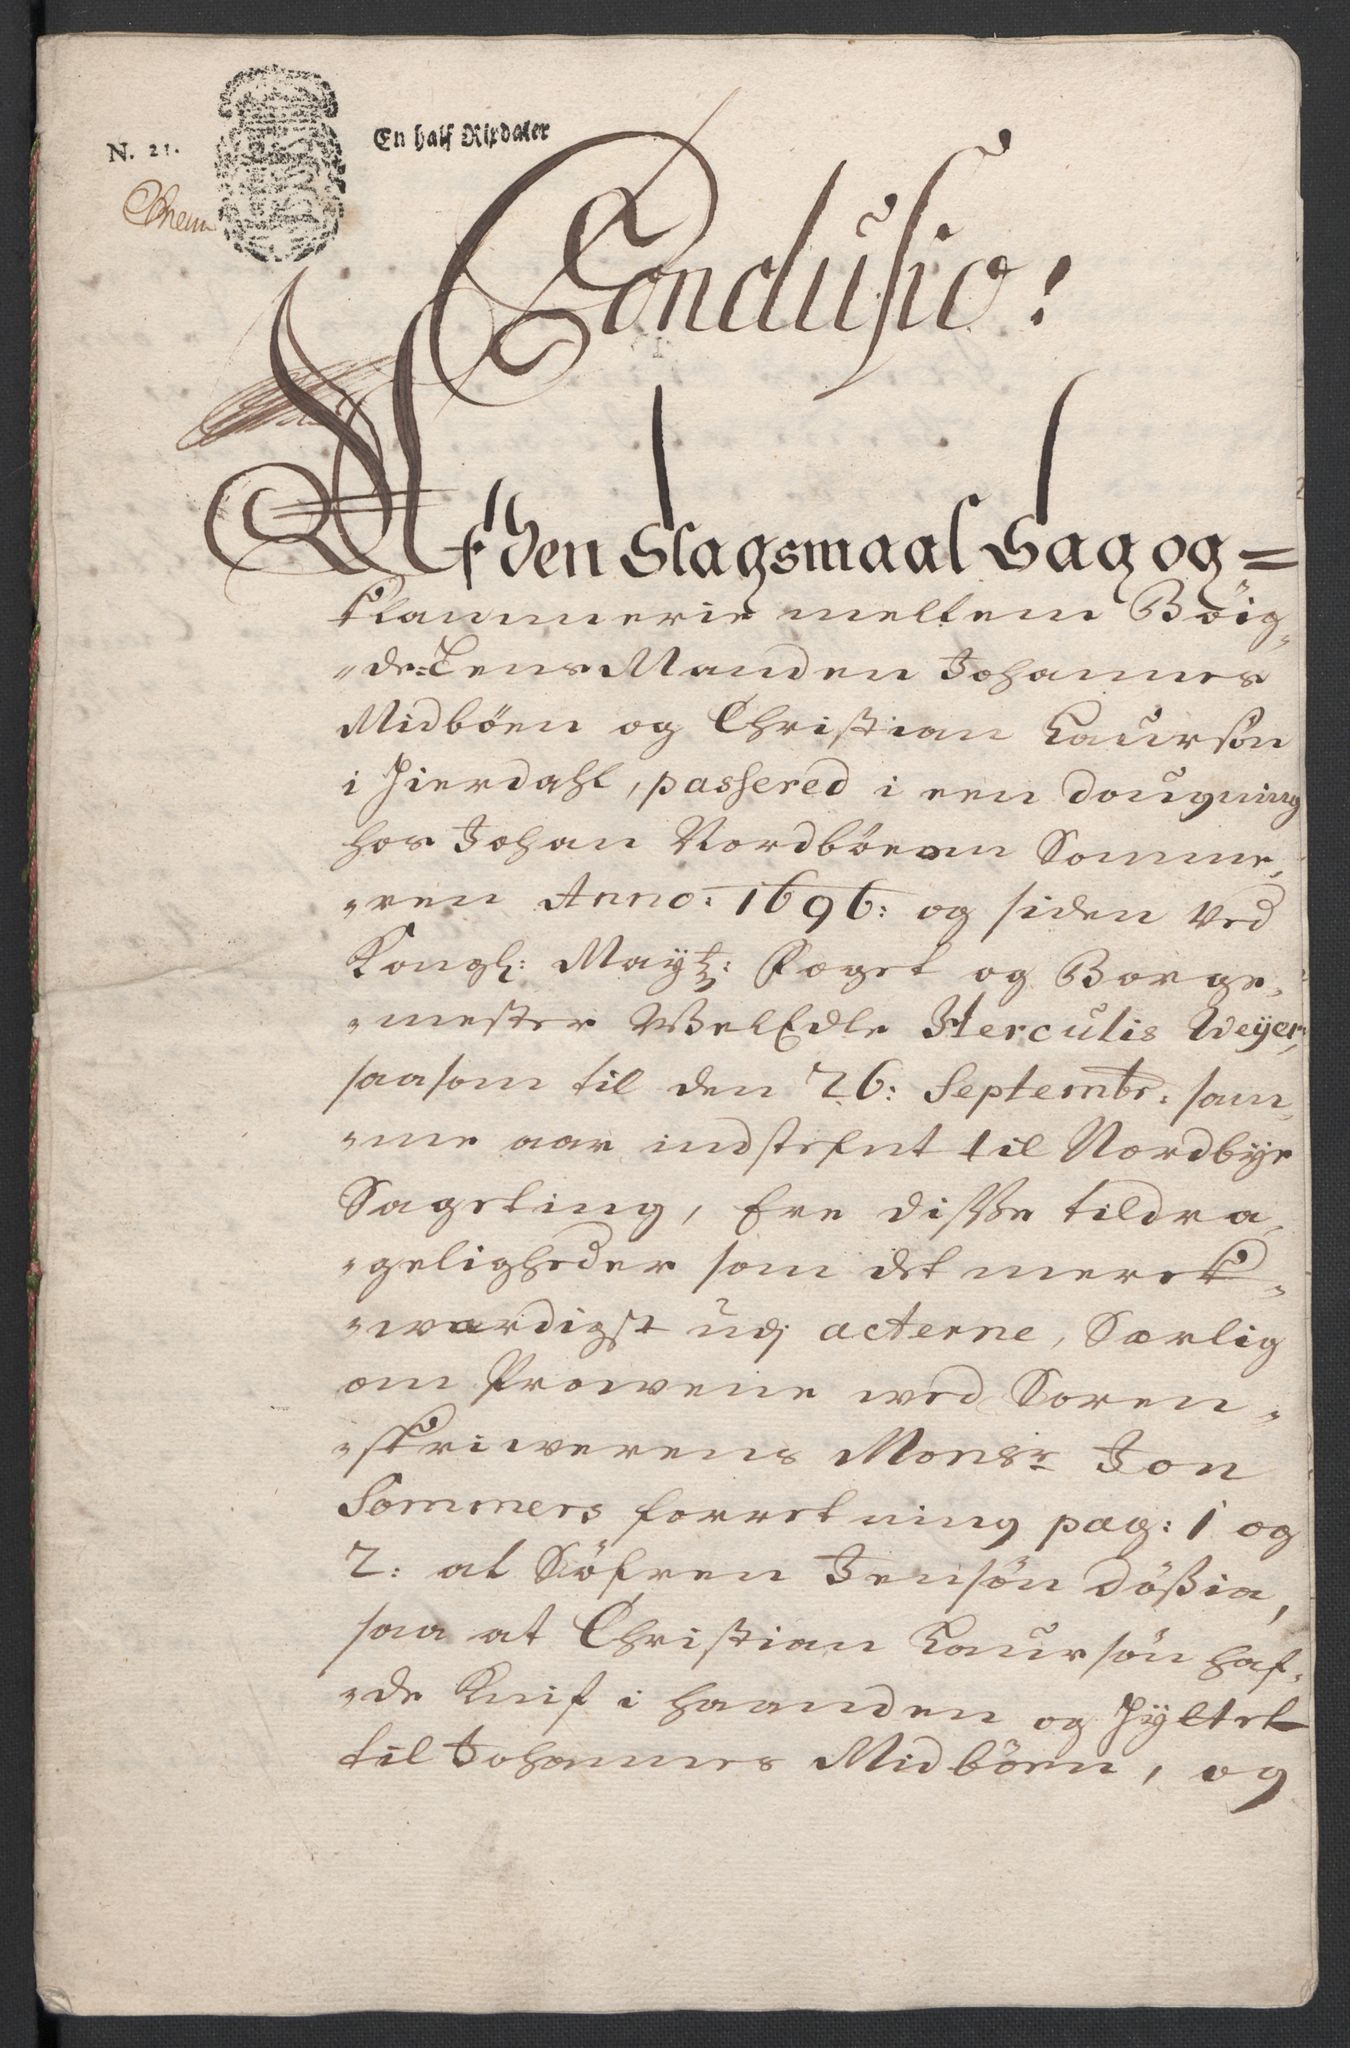 N. 21.
En half Rixdaler
Conclusio!
Af den Slagsmaal Sag og=
klammerie mellem Böig,,
,,de=Lens Manden Johannes
Midböen og Christian Laursön
i Hierdahl, passered i een dougning
hos Johan Nordböenn Somme,,
,,ren Anno: 1696: og siden ved
Kongl: Maytz: Foget og Borge,,
,,mester WelEdle Herculis Weyer,
saasom til den 26: Septembr: sam,,
,,me aar indstefnt til Nordbye
Sageting, Ere disse tildra,,
,,geligheder som det merck,,
,,wærdigst udj acterne, Særlig
om Prowene wed Soren,,
,,skriwerens Monsr Jon
Sommers forretning pag: 1 og
2: at Söfren Jensön Dößia,
saa at Christian Laursön haf,,
,,de Knif i haanden og Hyttet
til Johannes Midböen, og